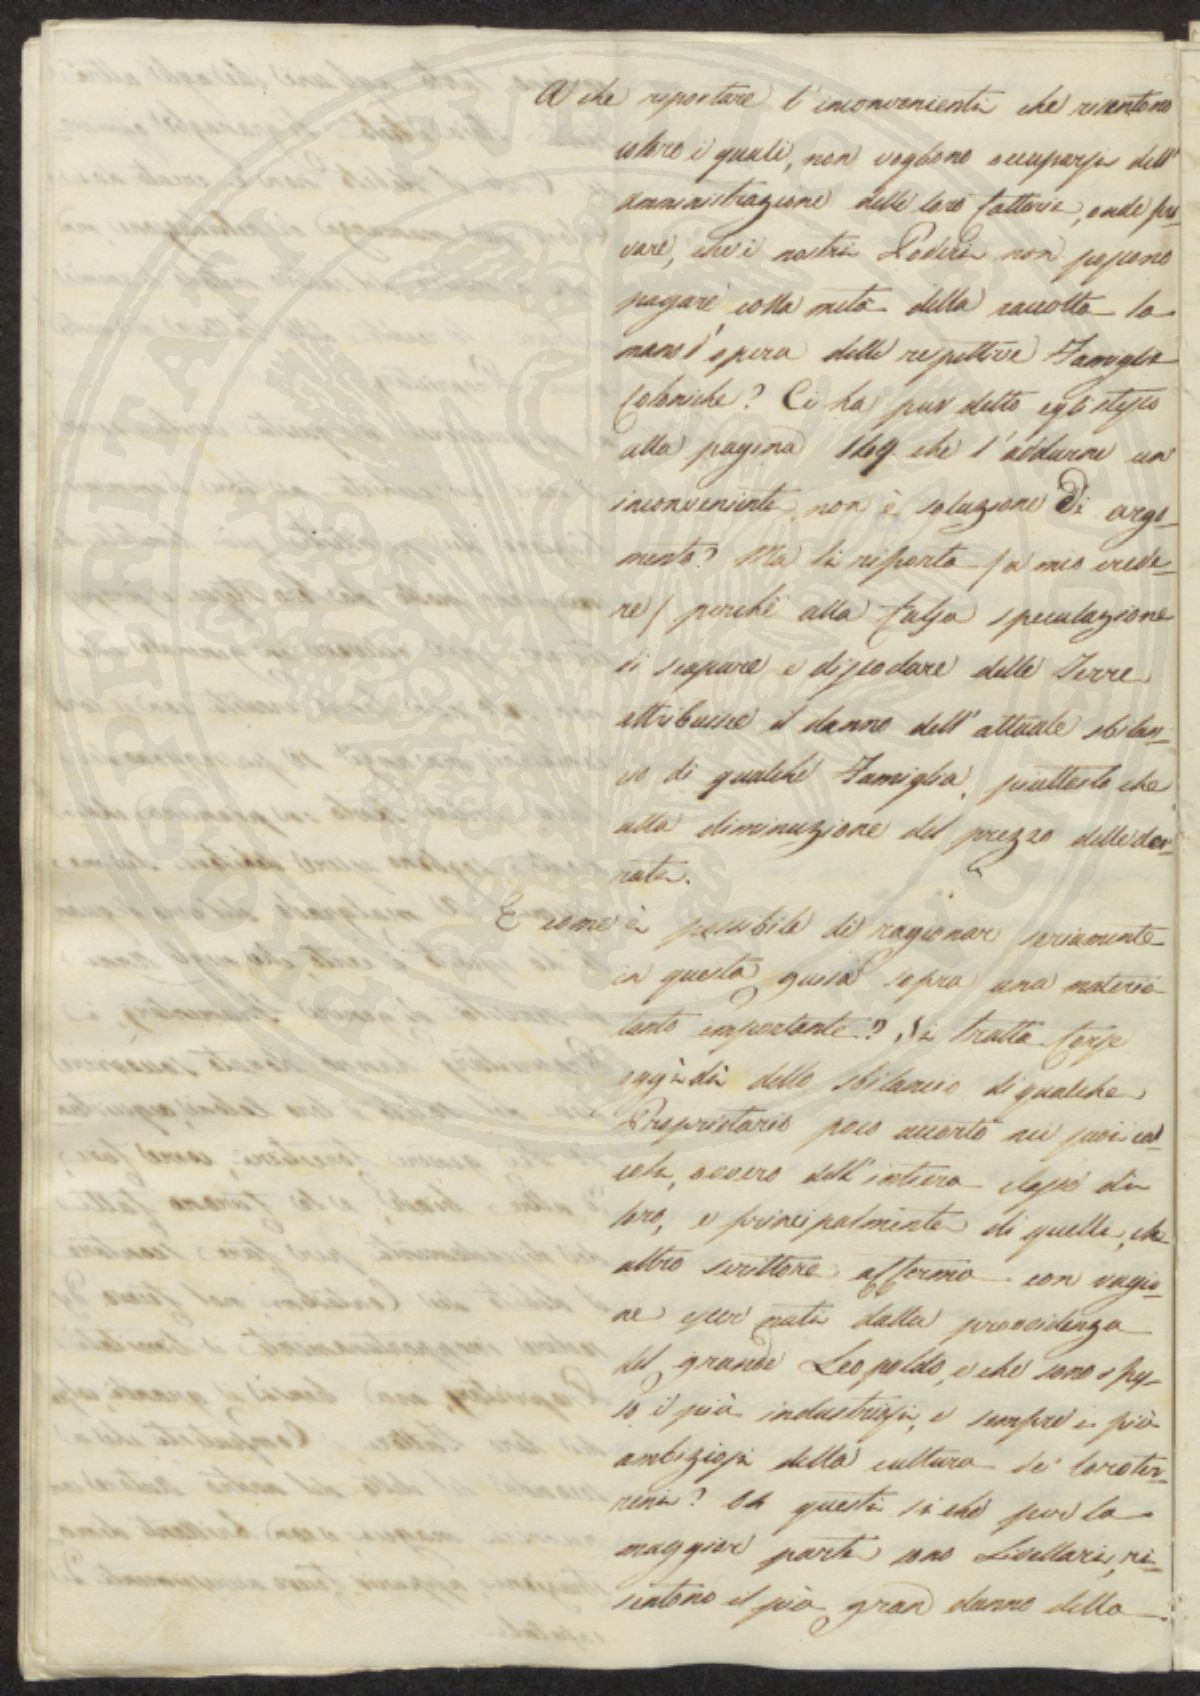 A che riportare l'inconvenienti che risentono
coloro i quali, non vogliono occuparsi dell'
amministrazione delle loro fattorie, onde pro-
vare, che i nostri Poderi non possono
pagare colla metà della raccolta la
mano d'opera delle respettive Famiglie
Coloniche? Ci ha pur detto egli stesso
alla pagina che l'addurne un
inconveniente, non è soluzione di argo-
mento? Ma li riporta (a mio crede-
re) perchè alla falsa speculazione
di scapare e disodare delle Terre
attribuisce il danno dell'attuale sbilan-
cio di qualche Famiglia, piuttosto che
alla diminuzione del prezzo delle der-
rate.
E come è possibile di ragionar seriamente
in questa guisa sopra una materia
tanto importante? Si tratta forse
oggi di dello sbilancio di qualche
Proprietario poco accorto nei suoi cal-
coli, ovvero dell'intiera classe di
loro, e principalmente di quelli, che
altro scrittore affermò con ragio-
ne esser nati dalla provvidenza
del grande Leopoldo, e che sono spes-
so i più industriosi, e sempre i più
ambiziosi della cultura de' loro ter-
reni? Oh questi sì che per la
maggior parte sono Livellari, ri-
sentono il più gran danno della